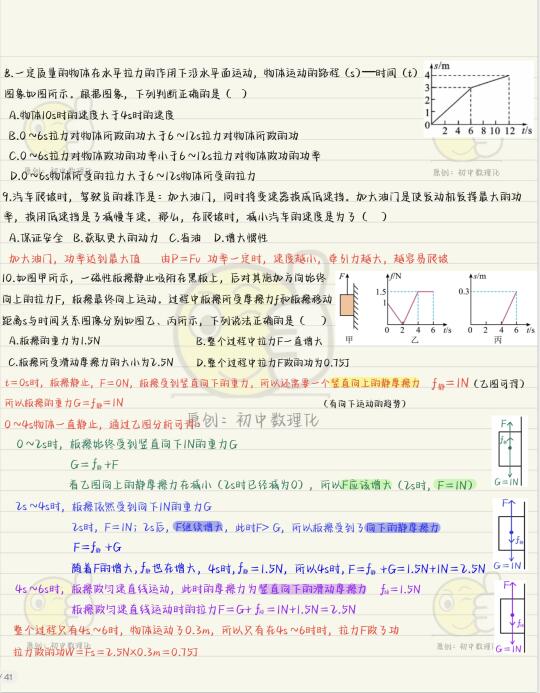 8.一定质量的物体在水平拉力的作用下沿水平面运动，物体运动的路程（s）—时间（t）
图象如图所示。根据图象，下列判断正确的是（ ）
A.物体10s时的速度大于4s时的速度
B.0~6s拉力对物体所做的功大于6~12s拉力对物体所做的功
C.0~6s拉力对物体做功的功率小于6~12s拉力对物体做功的功率
D.0~6s物体所受的拉力大于6~12s物体所受的拉力
s/m
4
3
2
1
0 2 4 6 8 10 12 t/s
9.汽车爬坡时，驾驶员的操作是：加大油门，同时将变速器换成低速挡。加大油门是使发动机发挥最大的功
率，换用低速挡是了减慢车速。那么，在爬坡时，减小汽车的速度是为了（ ）
A.保证安全 B.获取更大的动力 C.省油 D.增大惯性
加大油门，功率达到最大值 由P=Fv 功率一定时，速度越小，牵引力越大，越容易爬坡
10.如图甲所示，一磁性板擦静止吸附在黑板上，后对其施加方向始终
向上的拉力F，板擦最终向上运动。过程中板擦所受摩擦力f和板擦移动
距离s与时间关系图像分别如图乙、丙所示，下列说法正确的是（ ）
A.板擦的重力为1.5N B.整个过程中拉力F一直增大
C.板擦所受滑动摩擦力的大小为2.5N D.整个过程中拉力F做的功为0.75J
F
甲
f/N
1.5
1
0 2 4 6 t/s
乙
s/m
0.3
0 2 4 6 t/s
丙
t=0s时，板擦静止，F=0N，板擦受到竖直向下的重力，所以还需要一个竖直向上的静摩擦力 f静=1N（乙图可得）
所以板擦的重力G=f静=1N （有向下运动的趋势）
0~4s物体一直静止，通过乙图分析可得。
0~2s时，板擦始终受到竖直向下1N的重力G
G=f静+F
看乙图向上的静摩擦力在减小（2s时已经减为0），所以F应该增大（2s时，F=1N）
F
f静
G=1N
2s~4s时，板擦依然受到向下1N的重力G
2s时，F=1N；2s后，F继续增大，此时F>G，所以板擦受到了向下的静摩擦力
F=f静+G
随着F的增大，f静也在增大，4s时，f静=1.5N，所以4s时，F=f静+G=1.5N+1N=2.5N
F
f静
G=1N
4s~6s时，板擦做匀速直线运动，此时的摩擦力为竖直向下的滑动摩擦力 f滑=1.5N
板擦做匀速直线运动时的拉力F=G+f滑=1N+1.5N=2.5N
F
f滑
G=1N
整个过程只有4s~6s时，物体运动了0.3m，所以只有在4s~6s时时，拉力F做了功
拉力做的功W=Fs=2.5N×0.3m=0.75J
原创：初中数理化
原创：初中数理化
原创：初中数理化
原创：初中数理化
原创：初中数理化
/ 41